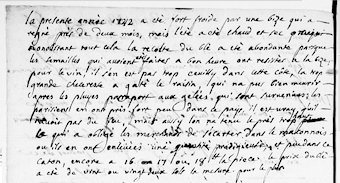 la presente année 1742 a eté fort froide par une bize qui a
regné près de deux mois, mais l'eté a eté chaud et sec
nonobstant tout cela la recolte du blé a eté abondante parceque
les semailles qui avoient faites a bon heure ont resisté a la bize,
pour le vin il s'en est pas trop ceuilly dans cette côte, la trop
grande secheresse a gâté le raisin, qui n'a pas bien meurir
apres les pluyes par raport aux gelées, qui sont survenues, les
parisiens en ont pris fort peu dans le pays, il est vray qu'il
n'avoit pas du feu, mais aussi l'on a tenu le prix trop
qui a obligé les marchands de s'écarter dans le makonnois
ou ils en ont enlevées une quantité prodigieuse et pendant ce
encore a 16 - 17 ou 18 la piece. le prix du blé
a eté du vint ou vingt deux sols la mesure pour le